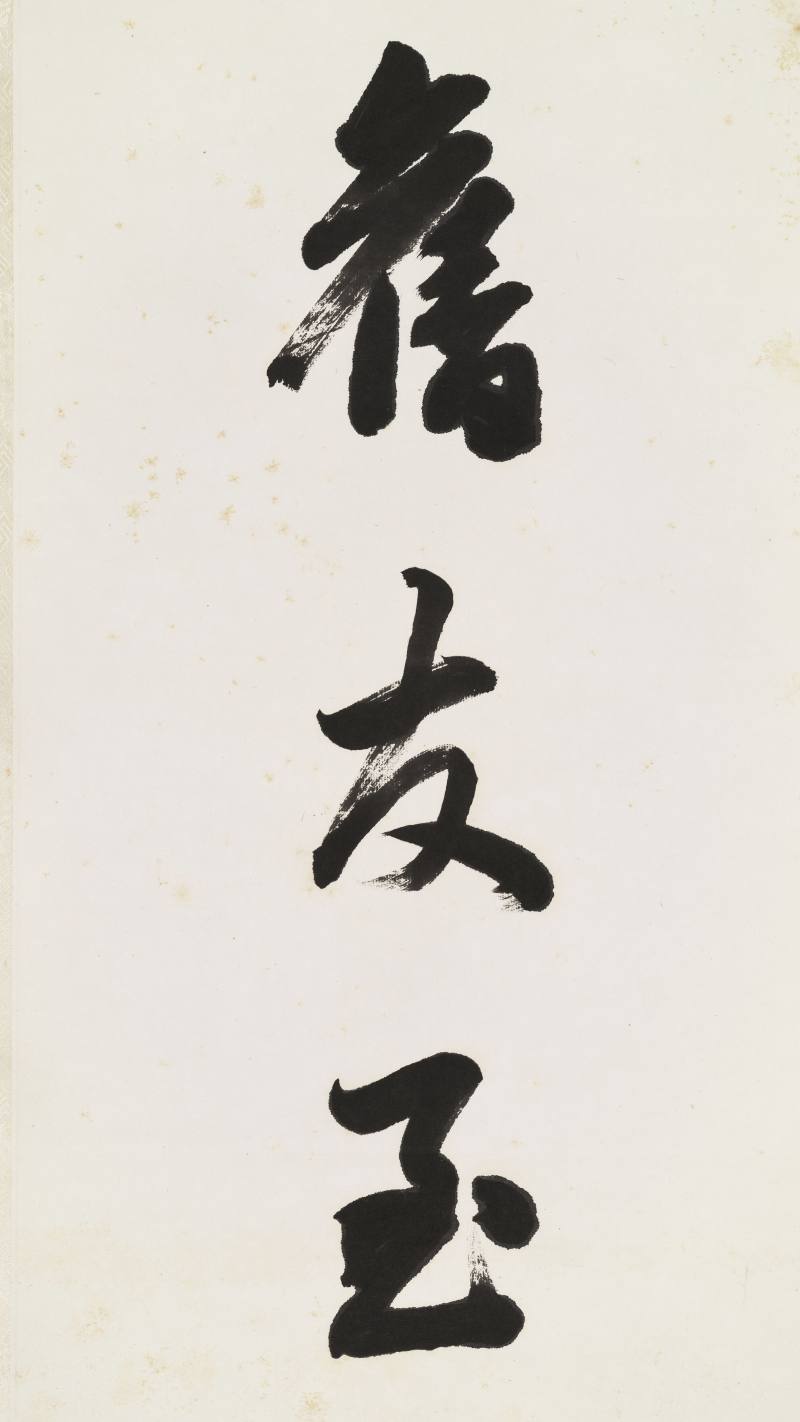 舊友至